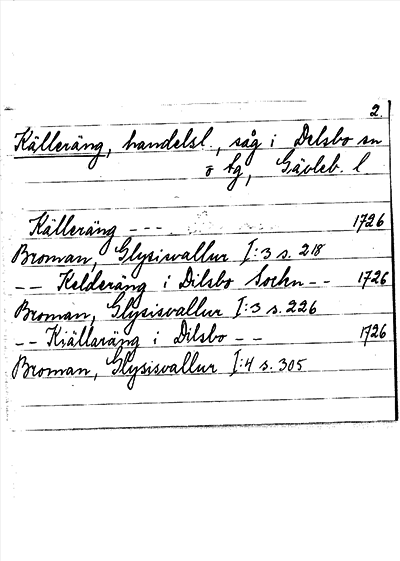 2.
Källeräng, handelsl., såg i Delsbo sn
o tg, Gävleb. l
Källeräng --- 1726
Broman, Glysisvallur I:3 s. 218
-- Kelderäng i Dilsbo Sochn -- 1726
Broman, Glysisvallur I:3 s. 226
-- Kiällaräng i Dilsbo -- 1726
Broman, Glysisvallur I:4 s. 305